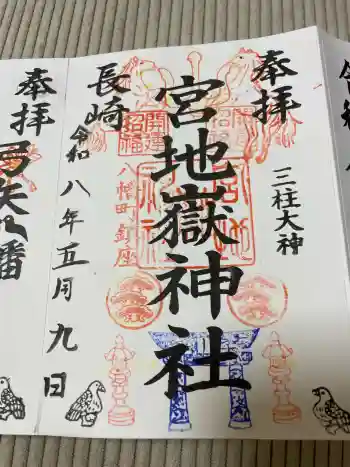 奉拝
三柱大神
宮地嶽神社
開運
招福
八幡町鎮座
長崎
令和八年五月九日
奉拝
弓矢八幡